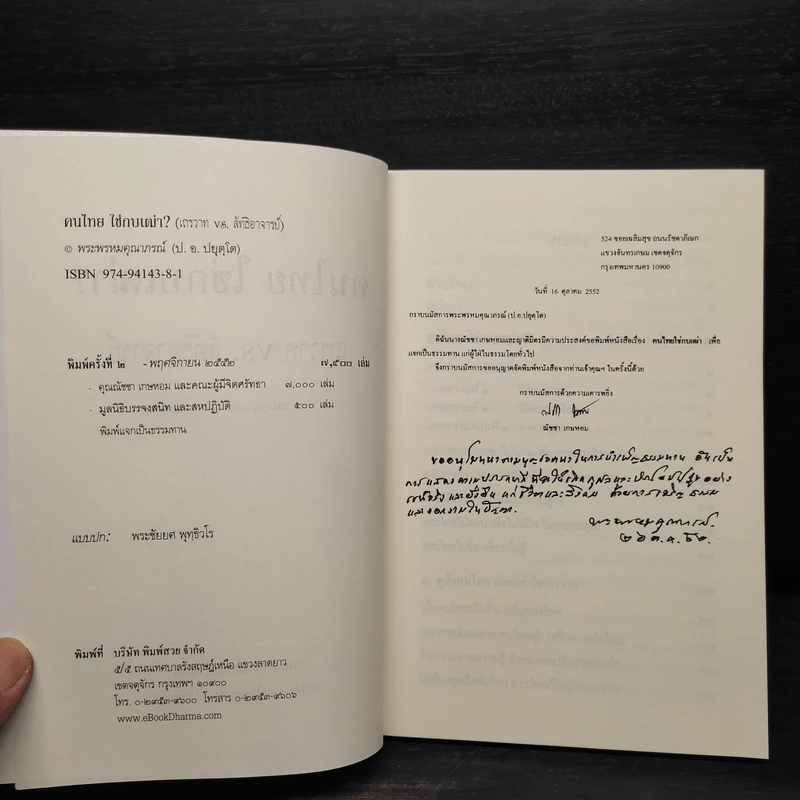 คนไทย ใช่กบเฒ่า? (เถรวาท vs. ลัทธิอาจารย์)
© พระพรหมคุณาภรณ์ (ป. อ. ปยุตฺโต)
ISBN 974-94143-8-1
พิมพ์ครั้งที่ ๒ - พฤศจิกายน ๒๕๕๒ ๗,๕๐๐ เล่ม
- คุณณัชชา เกษหอม และคณะผู้มีจิตศรัทธา ๗,๐๐๐ เล่ม
- มูลนิธิบรรจงสนิท และสหปฏิบัติ ๕๐๐ เล่ม
พิมพ์แจกเป็นธรรมทาน
แบบปก: พระชัยยศ พุทฺธิวโร
พิมพ์ที่ บริษัท พิมพ์สวย จำกัด
๕/๕ ถนนเทศบาลรังสฤษฎ์เหนือ แขวงลาดยาว
เขตจตุจักร กรุงเทพฯ ๑๐๙๐๐
โทร. ๐-๒๙๕๓-๙๖๐๐ โทรสาร ๐-๒๙๕๓-๙๖๐๖
www.eBookDharma.com
524 ซอยเฉลิมสุข ถนนรัชดาภิเษก
แขวงจันทรเกษม เขตจตุจักร
กรุงเทพมหานคร 10900
วันที่ 16 ตุลาคม 2552
กราบนมัสการพระพรหมคุณาภรณ์ (ป.อ.ปยุตฺโต)
ดิฉันนางณัชชา เกษหอมและญาติมิตรมีความประสงค์ขอพิมพ์หนังสือเรื่อง คนไทยใช่กบเฒ่า เพื่อ
แจกเป็นธรรมทาน แก่ผู้ใฝ่ในธรรมโดยทั่วไป
จึงกราบนมัสการขออนุญาตจัดพิมพ์หนังสือจากท่านเจ้าคุณฯ ในครั้งนี้ด้วย
กราบนมัสการด้วยความเคารพยิ่ง
ณัชชา เกษหอม
ขออนุโมทนาตามบุญเจตนาในการบำเพ็ญธรรมทาน อันเป็น
การแสดงความปรารถนาดี
และงอกงามในปัญญา
พระพรหมคุณาภรณ์
๒๖ ต.ค. ๕๒